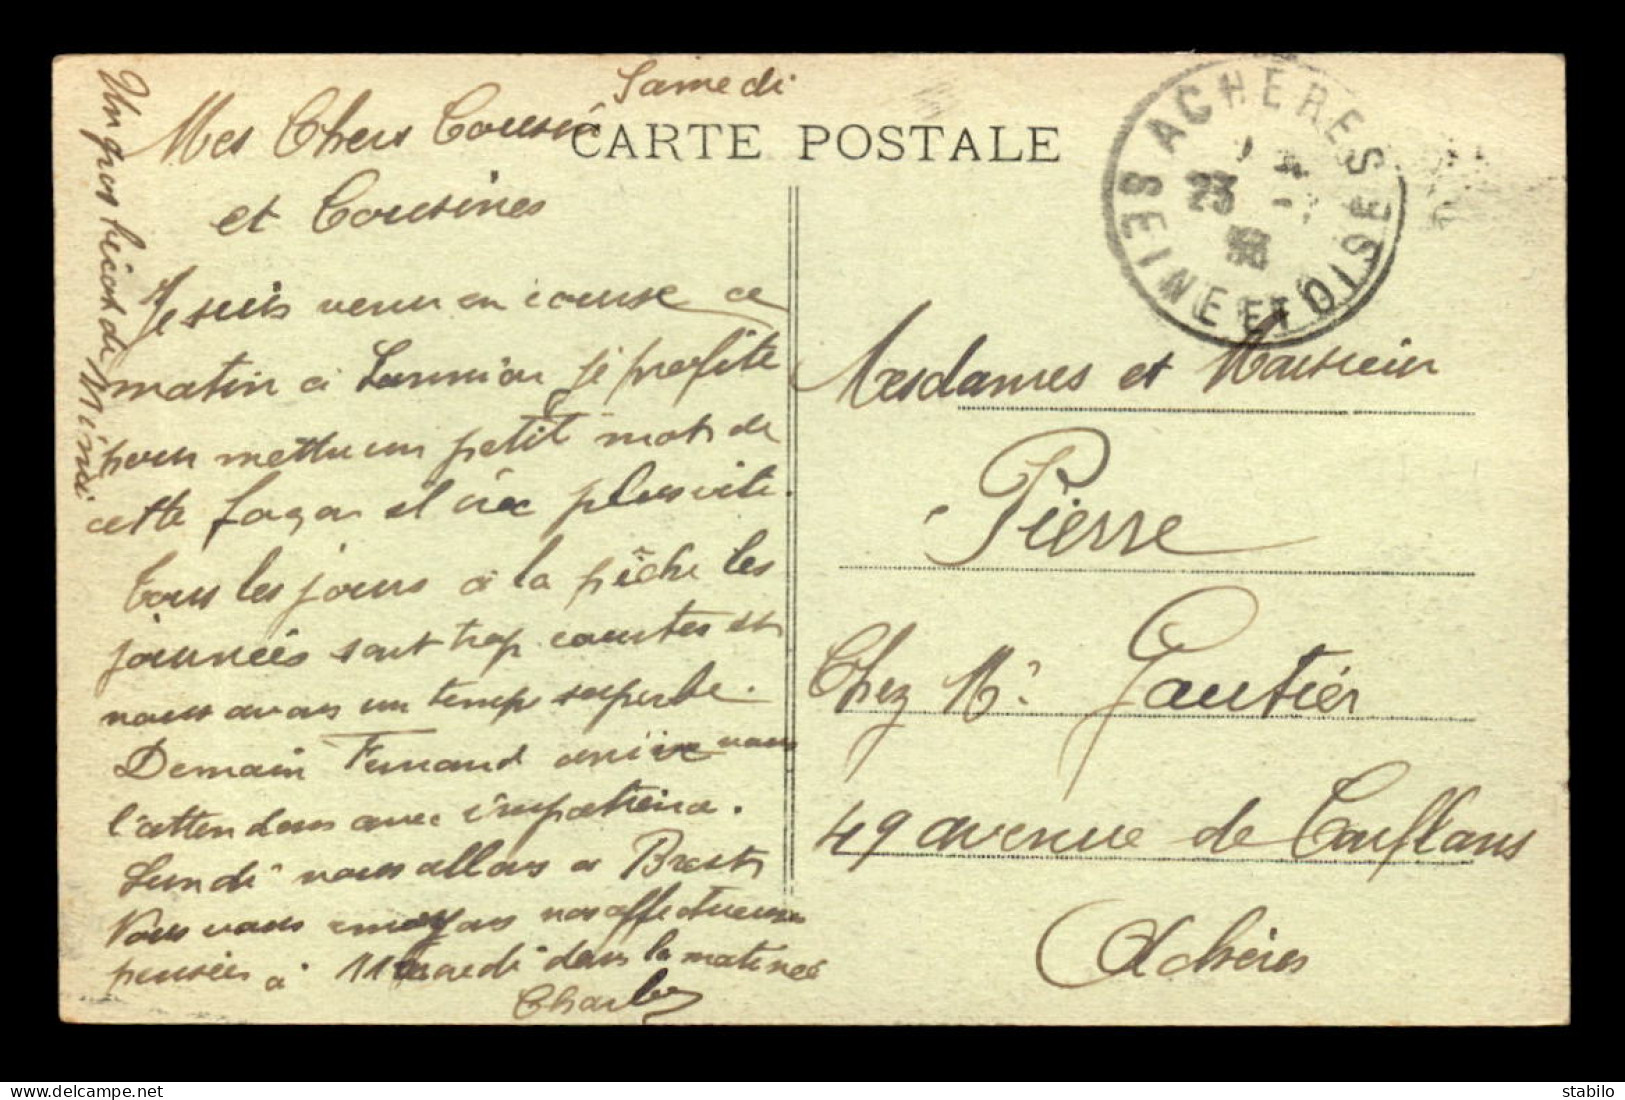 Samedi
Mes Chers Cousins
CARTE POSTALE
et Cousines
Je suis venu en course ce
matin à Lannion je profite
pour mettre un petit mot de
cette façon il ira plus vite.
Tous les jours à la pêche les
journées sont trop courtes et
nous avons un temps superbe.
Demain Fernand arrive nous
l'attendons avec impatience.
Lundi nous allons à Brest
Nous vous envoyons nos affectueuses
pensées à mardi dans la matinée
Charles
Un gros bécot de Mimi
ACHERES
SEINE ET OISE
23
Mesdames et Monsieur
Pierre
Chez Mr Gautier
49 avenue de Conflans
Achères
stabilo